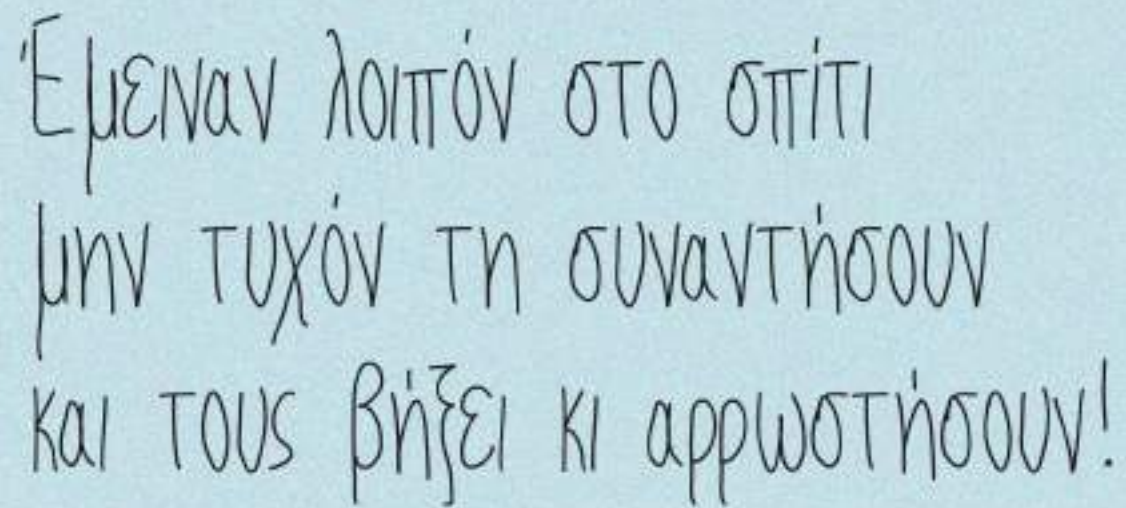 Έμειναν λοιπόν στο σπίτι
μην τυχόν τη συναντήσουν
και τους βήξει κι αρρωστήσουν!